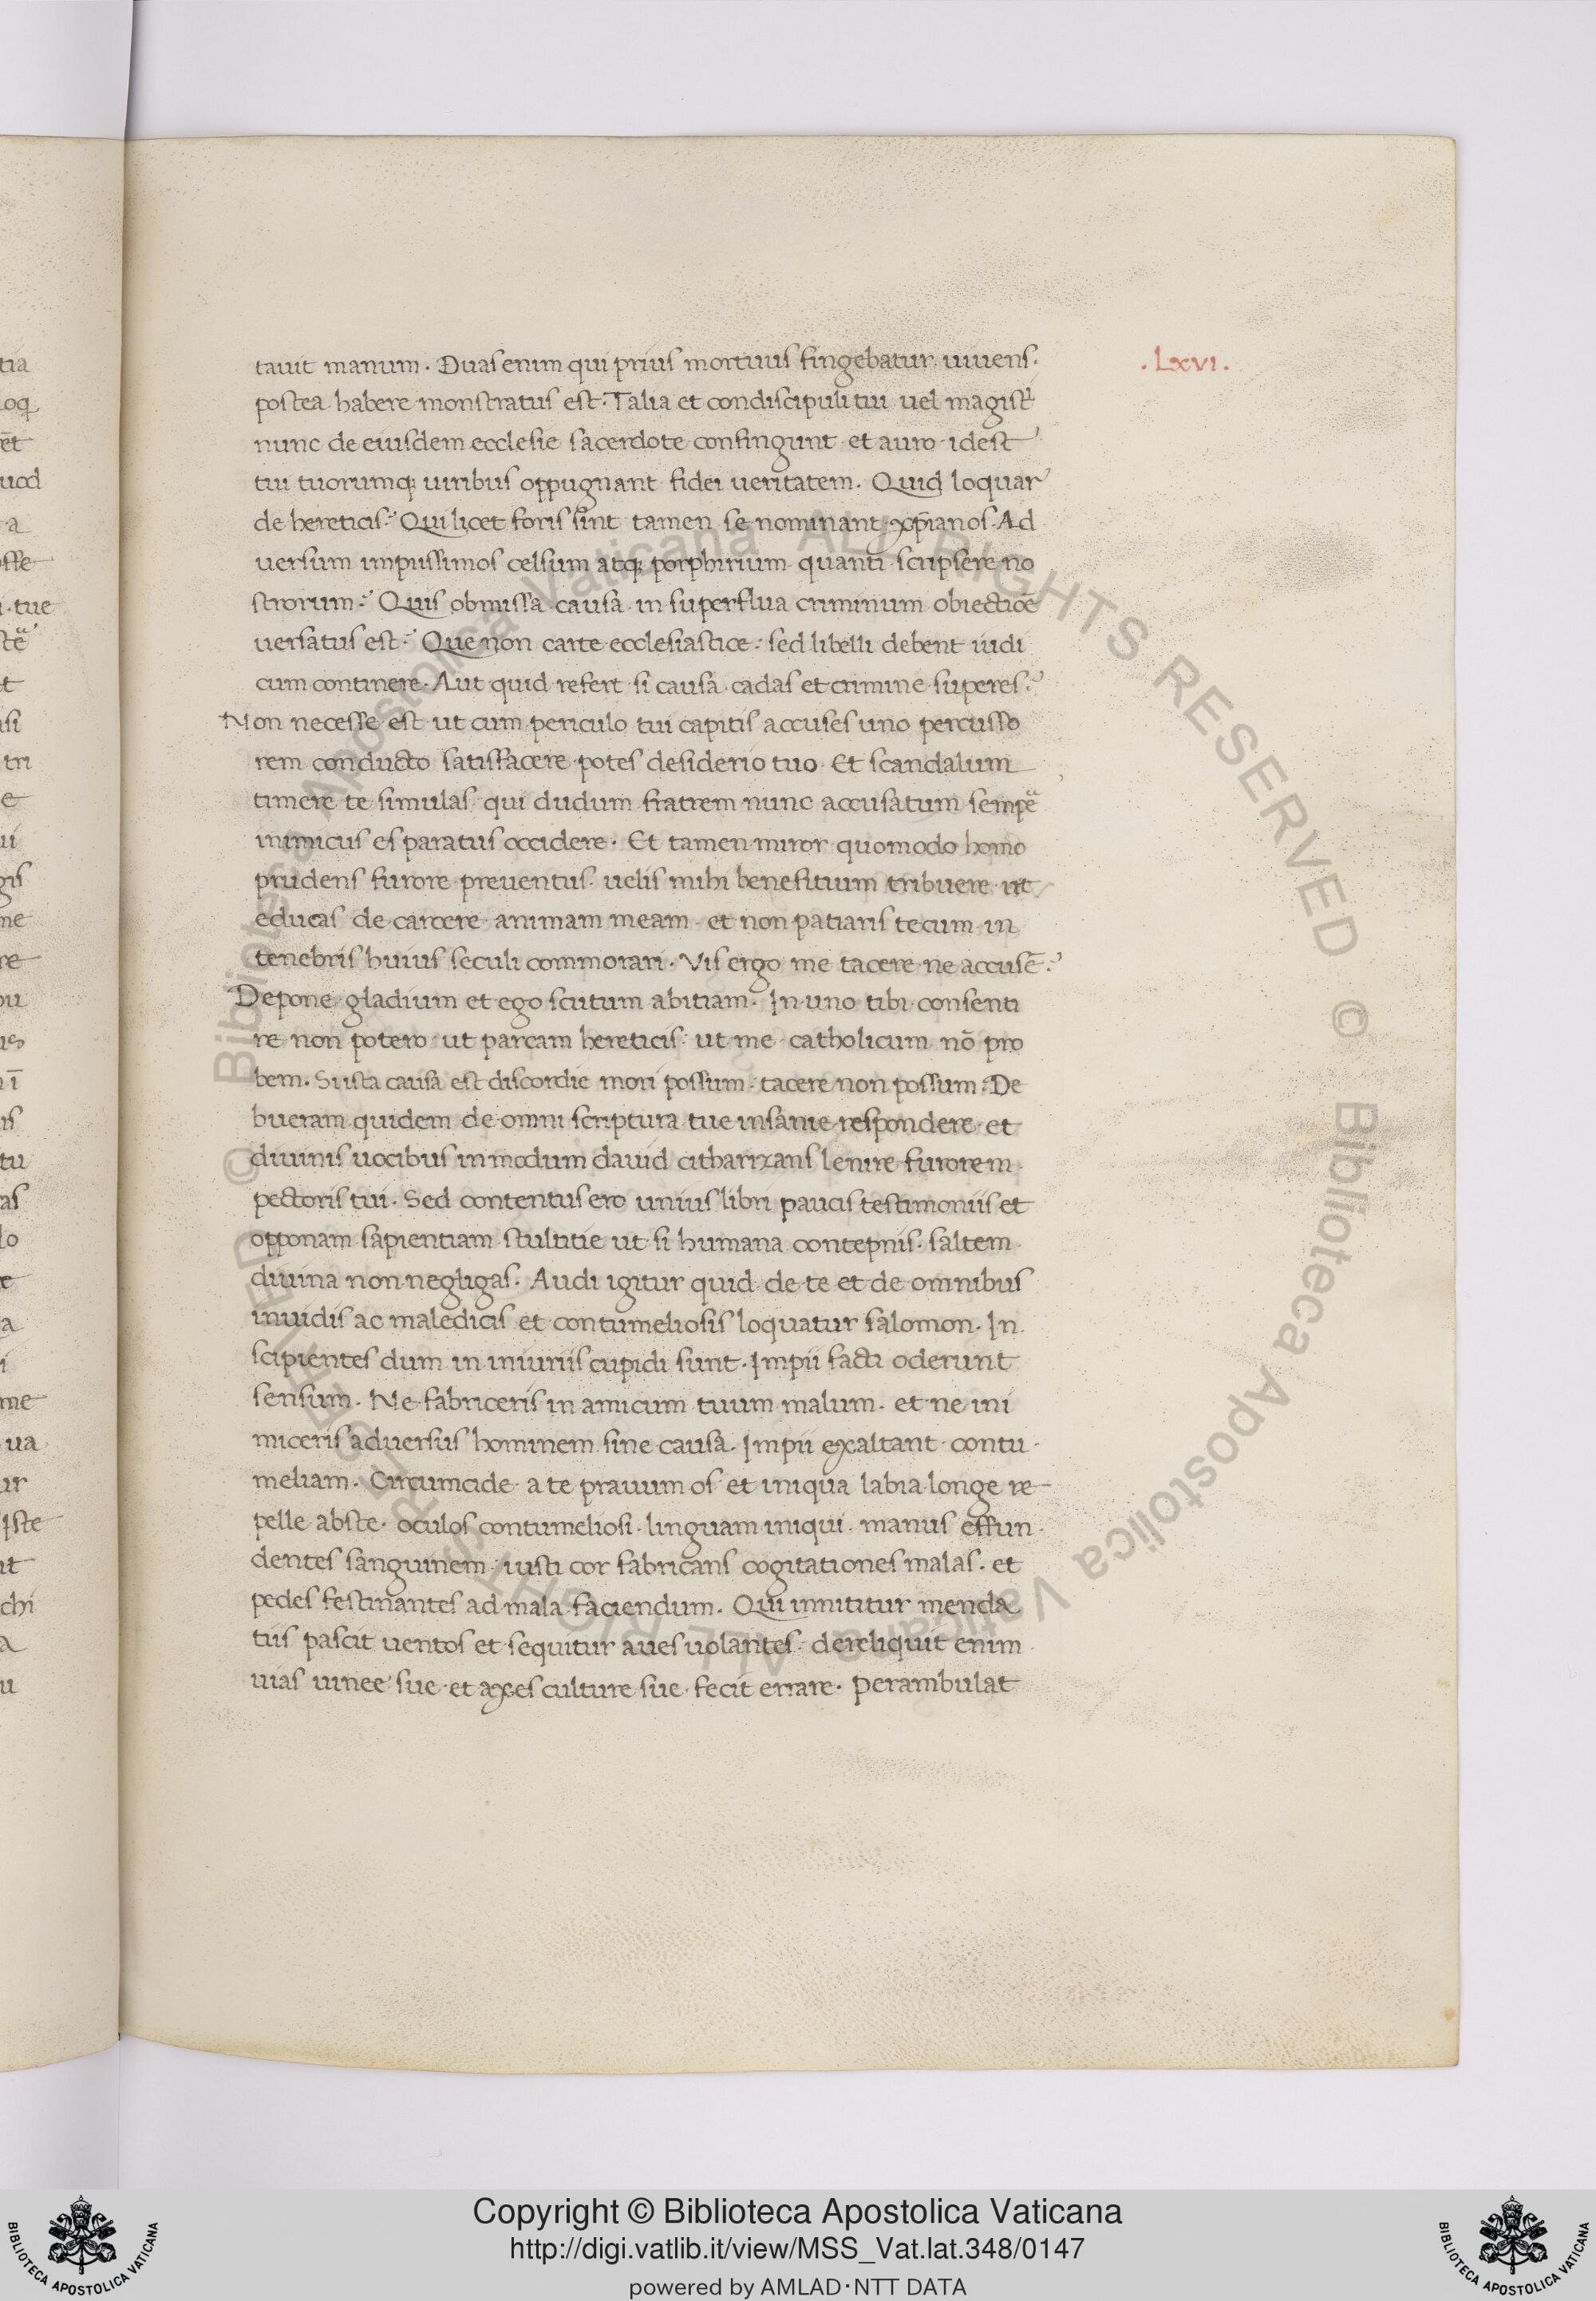 tauit manum. Duas enim qui prius mortuus fingebatur uiuens.
.Lxvi.
postea habere monstratus est. Talia et condiscipuli tui uel magistri
nunc de eiusdem ecclesie sacerdote confingunt et auro idest
tui tuorumq; uiribus oppugnant fidei ueritatem. Quid loquar
de hereticis? Qui licet foris sint tamen se nominant xp̄ianos. Ad
uersum impiissimos celsum atq; porphirium quanti scripsere no
strorum? Quis obmissa causa in superflua criminum obiectiōe
uersatus est? Que non carte ecclesiastice: sed libelli debent iudi
cum continere. Aut quid refert si causa cadas et crimine superes?
Non necesse est ut cum periculo tui capitis accuses uno percusso
rem conducto satisfacere potes desiderio tuo. Et scandalum
timere te simulas qui dudum fratrem nunc accusatum sempe
inimicus es paratus occidere. Et tamen miror quomodo homo
prudens furore preuentus uelis mihi benefitium tribuere ut
educas de carcere animam meam et non patiaris tecum in
tenebris huius seculi commorari. Vis ergo me tacere ne accusē?
Depone gladium et ego scutum abitiam. In uno tibi consenti
re non potero ut parcam hereticis: ut me catholicum nō pro
bem. Si ista causa est discordie mori possum tacere non possum. De
bueram quidem de omni scriptura tue insanie respondere et
diuinis uocibus in modum dauid citharizans lenire furorem
pectoris tui. Sed contentus ero unius libri paucis testimoniis et
opponam sapientiam stultitie ut si humana contepnis. saltem
diuina non negligas. Audi igitur quid de te et de omnibus
inuidis ac maledicis et contumeliosis loquatur salomon. In
scipientes dum in iniuriis cupidi sunt. Impii facti oderunt
sensum. Ne fabriceris in amicum tuum malum. et ne ini
miceris aduersus hominem sine causa. Impii exaltant contu
meliam. Circumcide a te prauum os et iniqua labia longe re
pelle abste. oculos contumeliosi. linguam iniqui. manus effun
dentes sanguinem iusti cor fabricans cogitationes malas. et
pedes festinantes ad mala faciendum. Qui innititur menda
tiis pascit uentos et sequitur aues uolantes. dereliquit enim
uias uinee sue et axes culture sue fecit errare. Perambulat
Copyright © Biblioteca Apostolica Vaticana
http://digi.vatlib.it/view/MSS_Vat.lat.348/0147
powered by AMLAD·NTT DATA
BIBLIOTECA APOSTOLICA VATICANA
BIBLIOTECA APOSTOLICA VATICANA
© Biblioteca Apostolica Vaticana ALL RIGHTS RESERVED
© Biblioteca Apostolica Vaticana ALL RIGHTS RESERVED